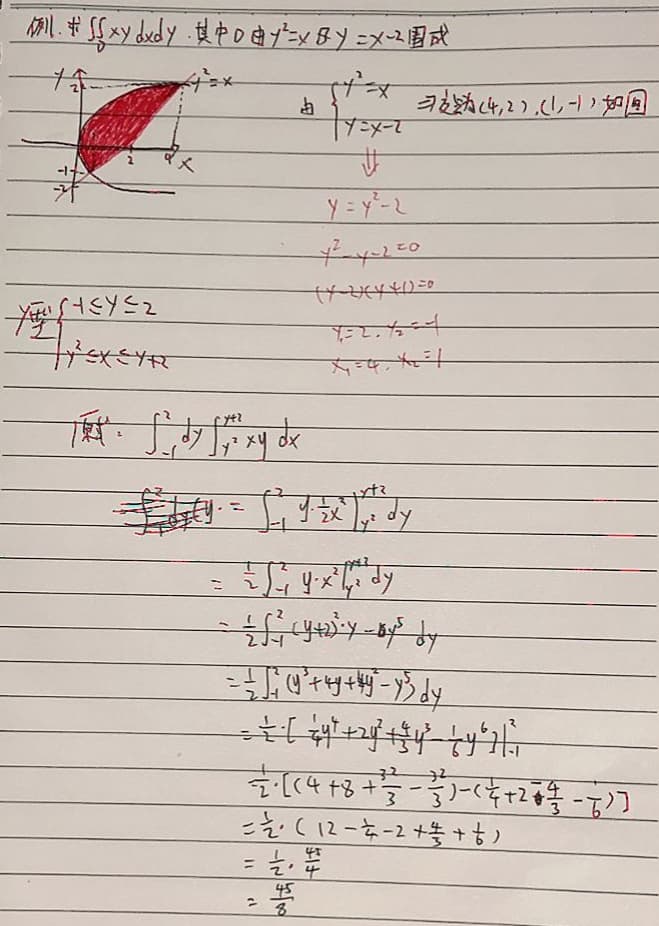 例1.求∬_D xy dxdy.其中D由y²=x及y=x-2围成
y
2
y²=x
2
4
x
-1
-2
由 { y²=x
y=x-2
交点为(4,2),(1,-1) 如图
⇓
y=y²-2
y²-y-2=0
(y-2)(y+1)=0
y₁=2.y₂=-1
x₁=4.x₂=1
y型 { -1≤y≤2
y²≤x≤y+2
原式=∫_{-1}^{2} dy ∫_{y²}^{y+2} xy dx
=∫_{-1}^{2} y·½x² |_{y²}^{y+2} dy
=½∫_{-1}^{2} y·x² |_{y²}^{y+2} dy
=½∫_{-1}^{2} (y+2)²·y-y⁵ dy
=½∫_{-1}^{2} (y³+4y+4y²-y⁵)dy
=½·[¼y⁴+2y²+4/3y³-1/6y⁶]|_{-1}^{2}
=½·[(4+8+32/3-32/3)-(¼+2-4/3-1/6)]
=½·(12-¼-2+4/3+1/6)
=½·45/4
=45/8